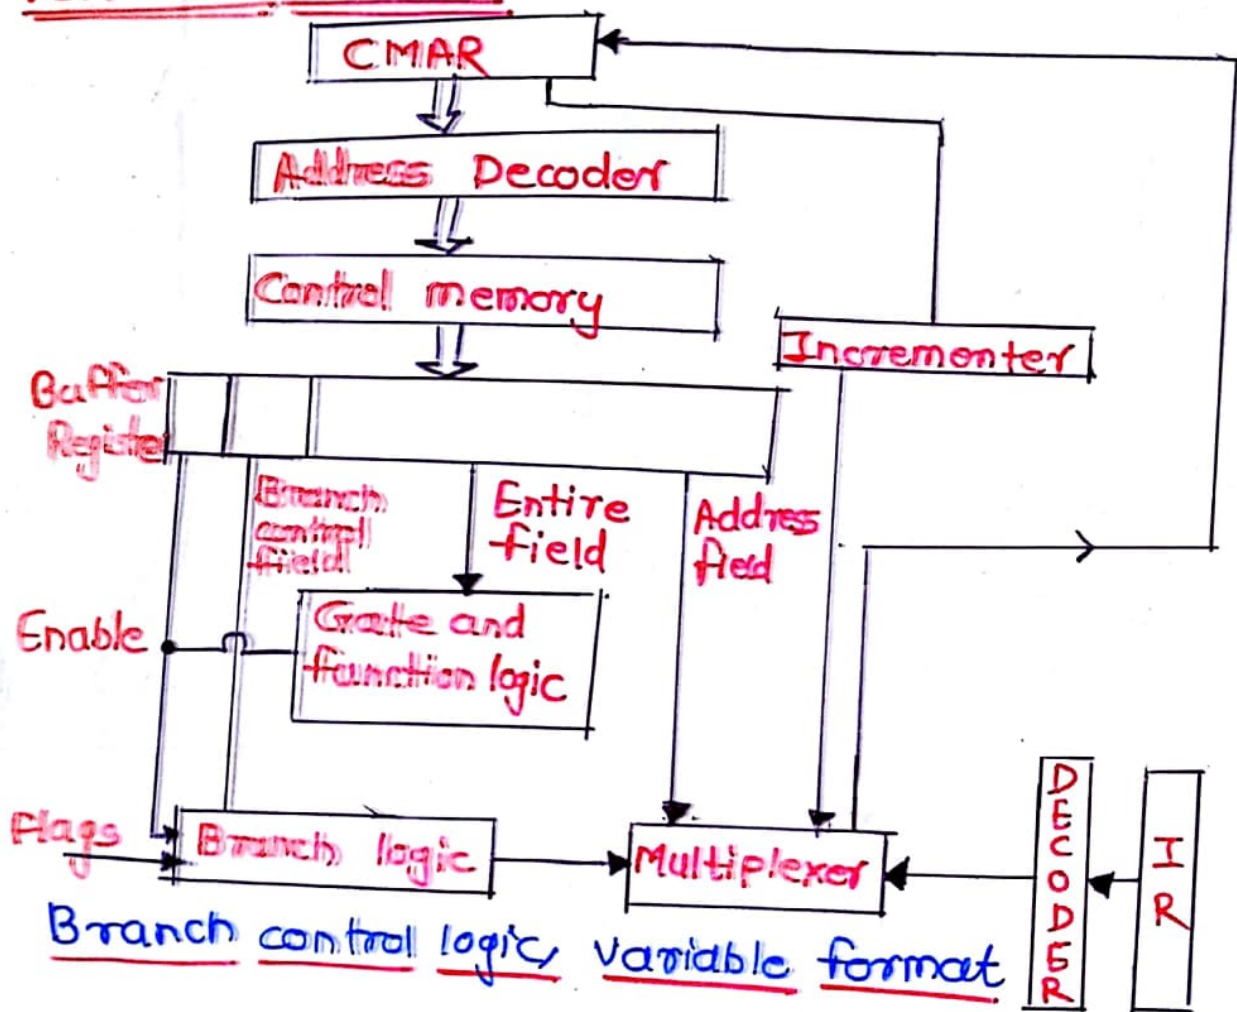 CMAR
Address Decoder
Control memory
Incrementer
Buffer
Register
Branch
control
field
Entire
field
Address
field
Enable
Gate and
function logic
Flags
Branch logic
Multiplexer
DECODER
IR
Branch control logic, variable format